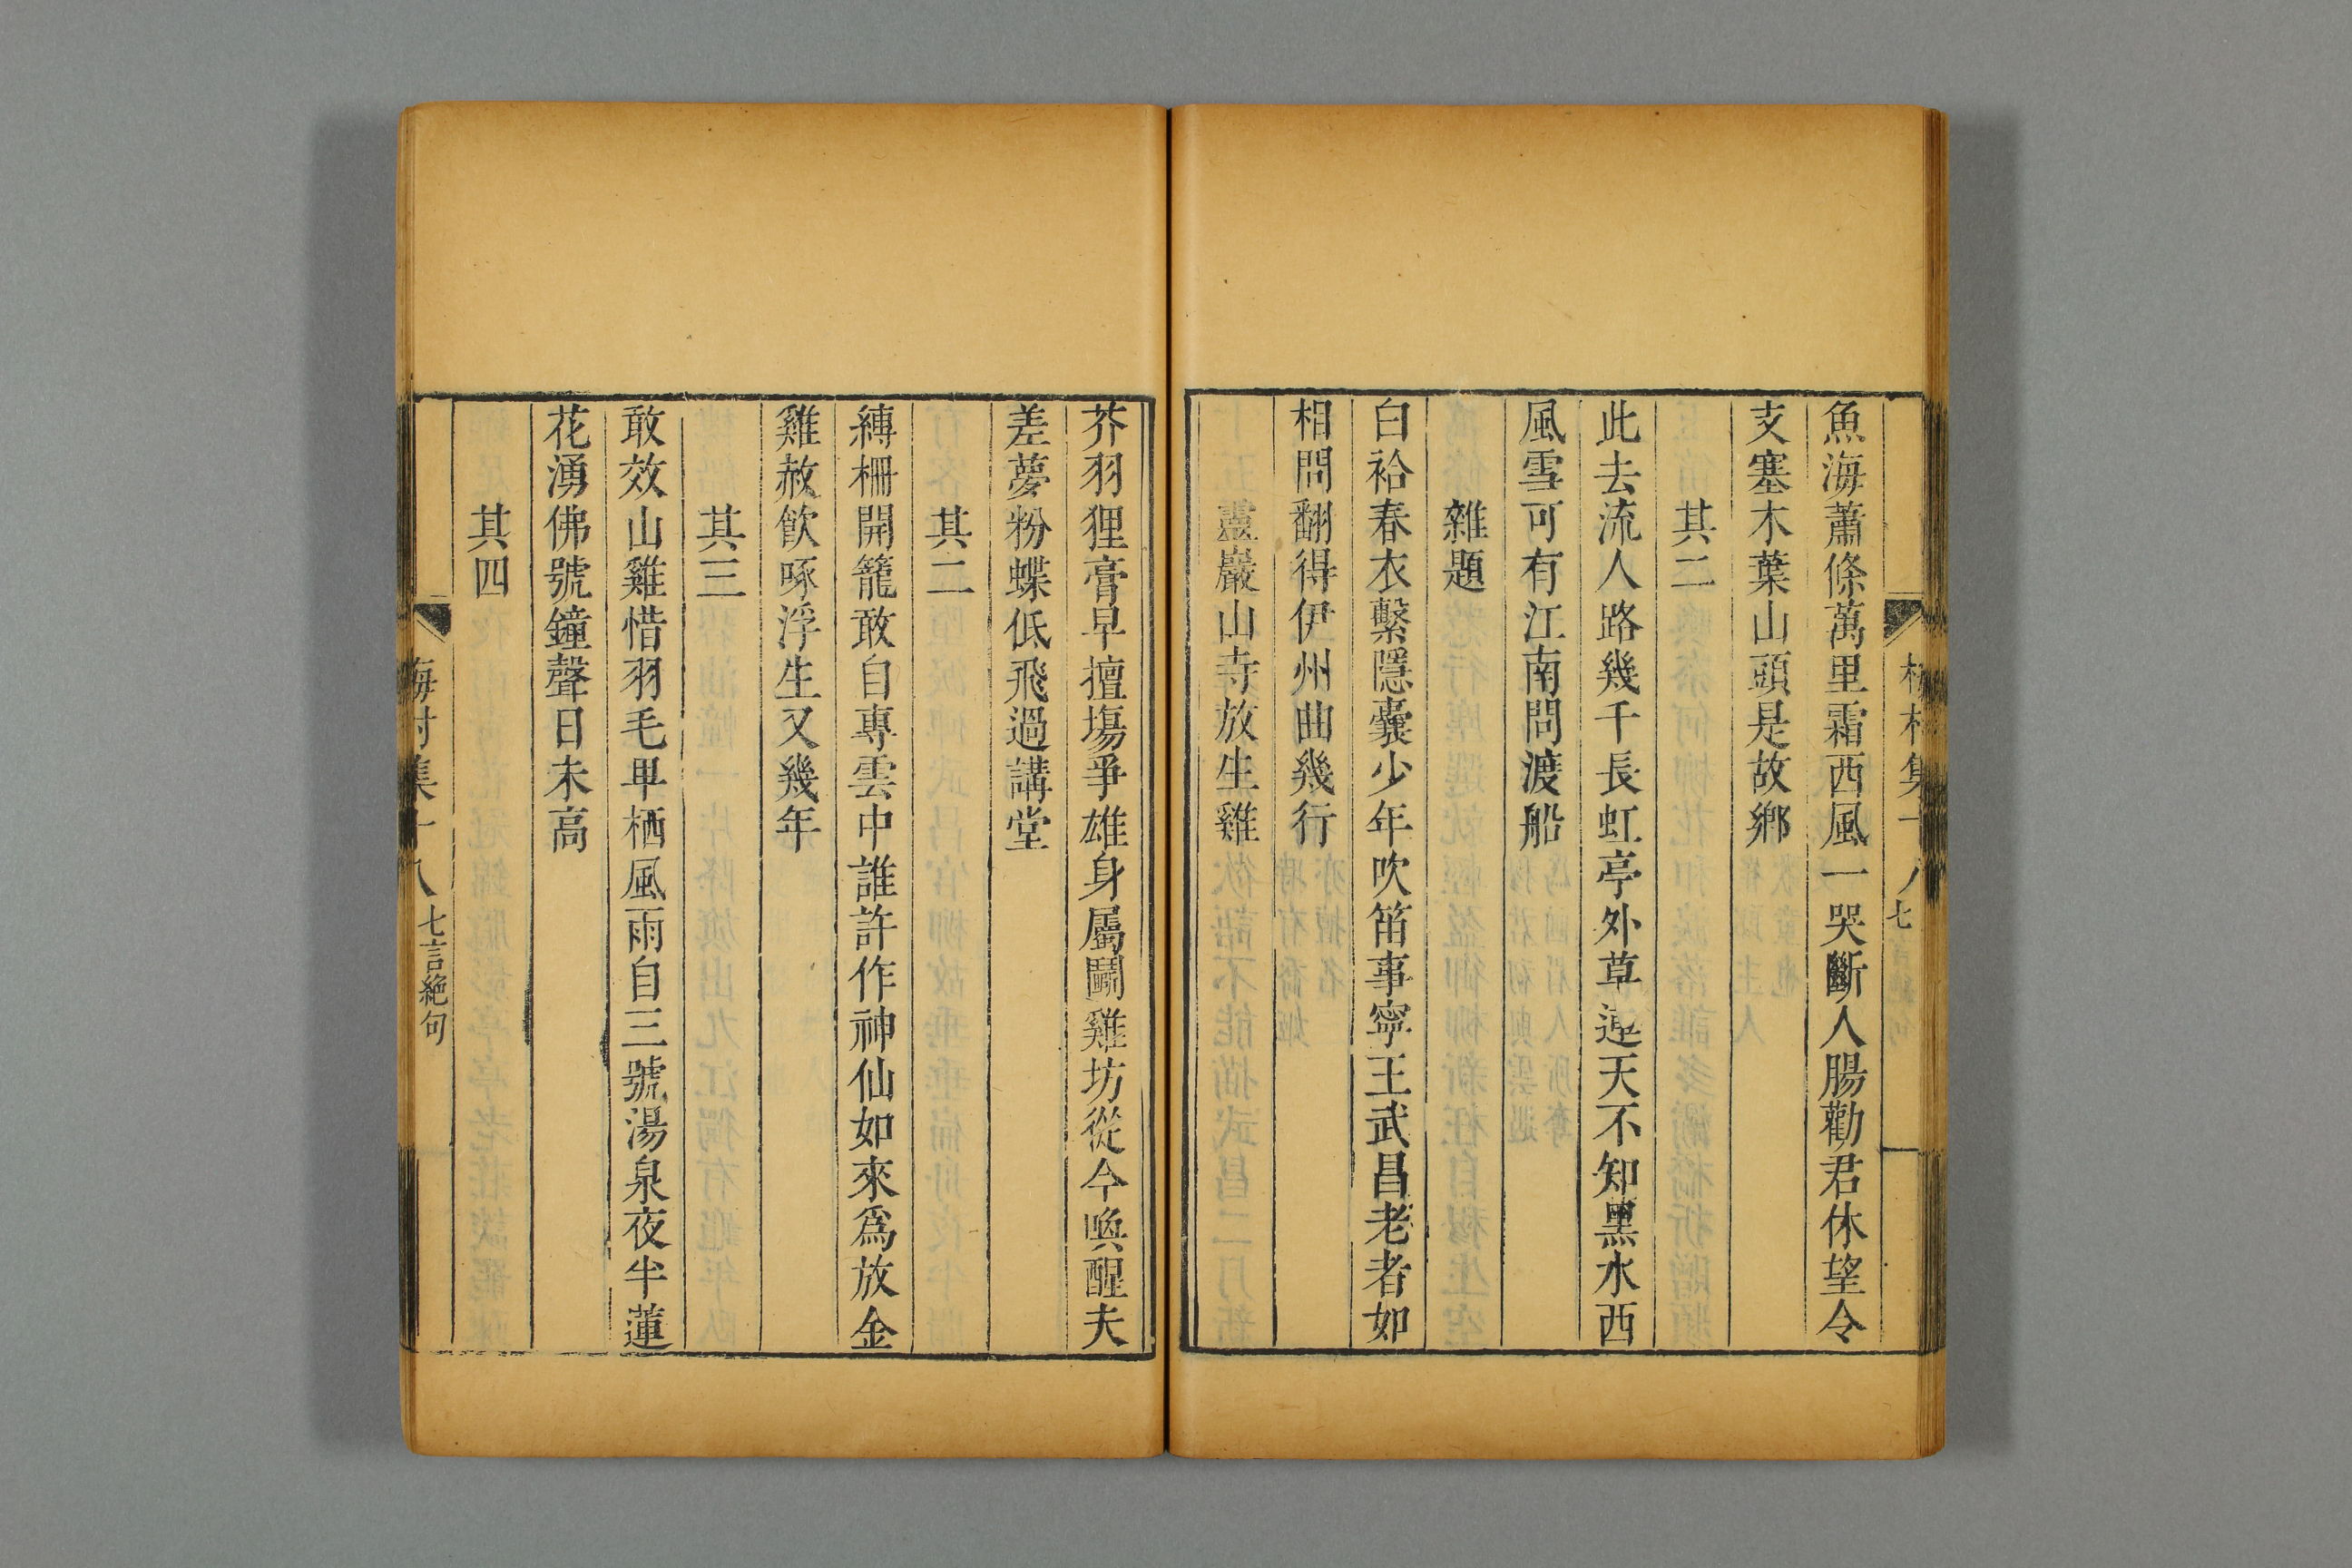 魚海蕭條萬里霜西風一哭斷人腸勸君休望令
支塞木葉山頭是故鄉
其二
此去流人路幾千長虹亭外草連天不知黑水西
風雪可有江南問渡船
雜題
白袷春衣繫隱囊少年吹笛事寧王武昌老者如
相問翻得伊州曲幾行
靈巖山寺放生雞
芥羽狸膏早擅塲爭雄身屬鬭雞坊從今喚醒夫
差夢粉蝶低飛過講堂
其二
縛柵開籠敢自專雲中誰許作神仙如來爲放金
雞赦飲啄浮生又幾年
其三
敢效山雞惜羽毛卑栖風雨自三號湯泉夜半蓮
花湧佛號鐘聲日未高
其四
梅村集十八
七言絶句